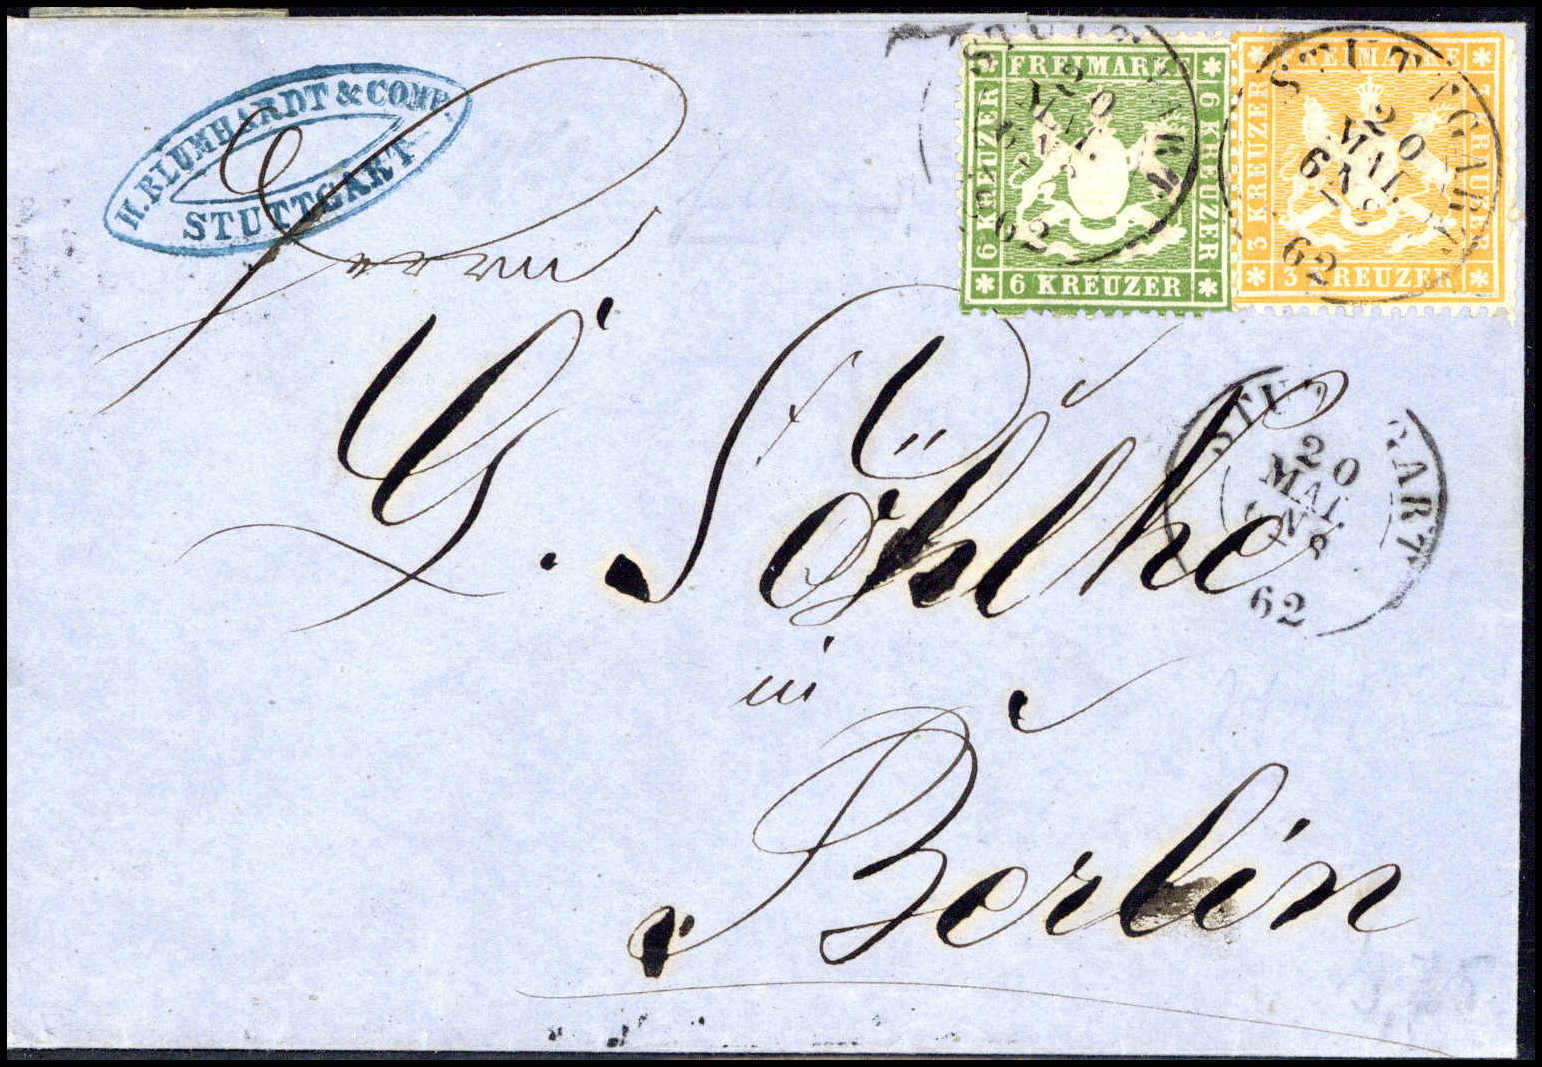 H. BLUMHARDT & COMP.
STUTTGART
FREIMARKE
6 KREUZER
6 KREUZER
6 KREUZER
FREIMARKE
3 KREUZER
3 KREUZER
3 KREUZER
STUTTGART
20
MAI
62
STUTTGART
20
MAI
62
Herrn
G. Söhlke
in
Berlin
STUTTGART
20
MAI
62